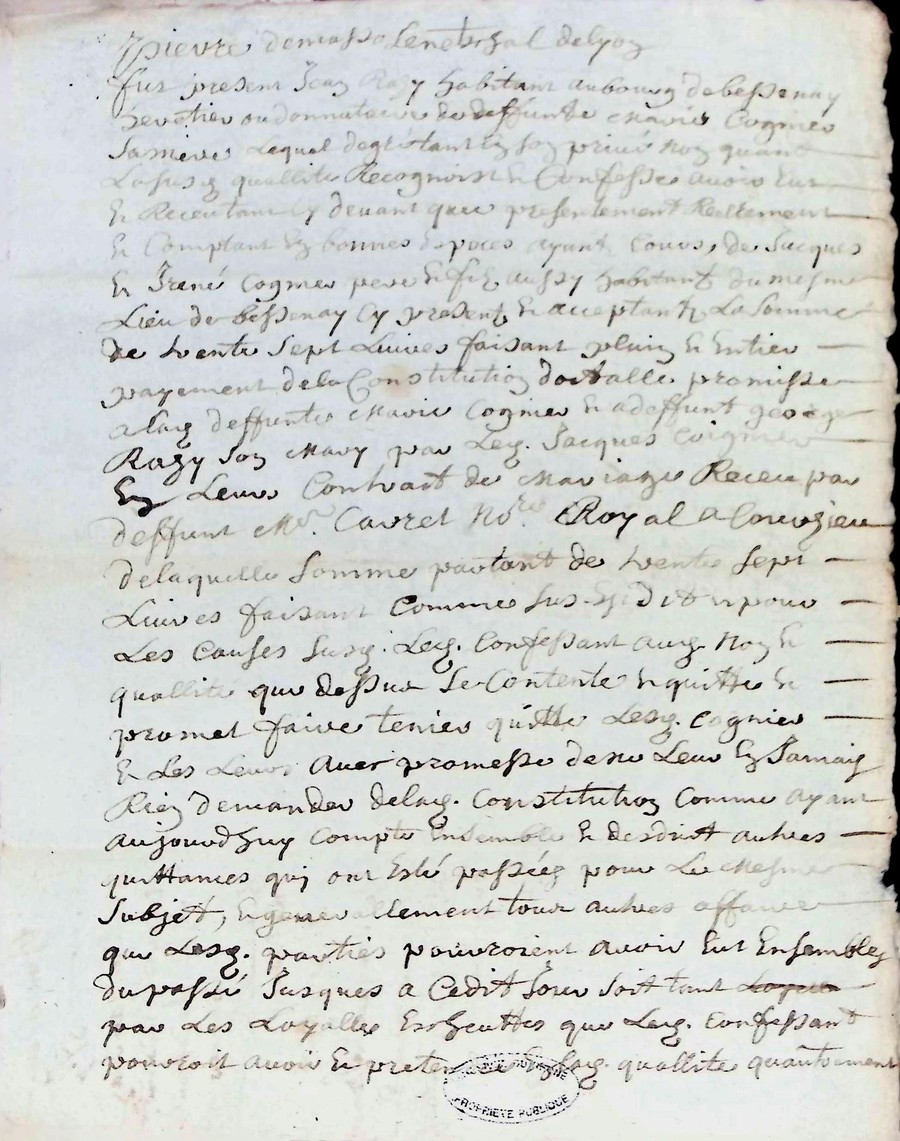 pierre demasso senechal de lyon
fut present Jean Razy habitant au bourg de bessenay
heretier ou donnataire de deffunte Marie Cognier
sa mere Lequel degré tant En son privé Nom quant
La susd quallite Recognoist & Confesse avoir Eut
& Receu tant Cy devant que presentement Reellement
& Comptant En bonnes Especes ayant Cours, de Jacques
& Irené Cognier pere & fiz aussy habitant du mesme
Lieu de bessenay Cy present & acceptant La Somme
de trente Sept Livres faisant plain & Entier
payement de la Constitution dottalle promisse
a lad deffunte Marie Cognier & a deffunt george
Razy Son Mary par Led. Jacques Coignier
En Leur Contract de Mariage Receu par
deffunt Me. Carret Nore. Royal a Courzieu
de laquelle Somme partant de trente Sept
Livres faisant Comme Sus Est dit & pour
Les Causes Susd. Led. Confessant aud. Nom &
quallité que dessus Se Contente & quitte &
promet faire tenier quitte Lesd. Cognier
& Les Leurs avec promesse de ne Leur En Jamais
Rien demander de lad. Constitution Comme ayant
aujourd'huy Compte Ensemble & desdroit autres
quittances quj ont Esté passées pour Le Mesme
Subjet, & generallement tour autres affaire
que Lesd. parties pouvroient avoir Eut Ensembles
du passé Jusques a Cedit Jour Soit tant
par Les Loyalle Escheuttes que Led. Confessant
pouvroit avoir & preten En lad. quallite quantrement
PROPRIÉTÉ PUBLIQUE